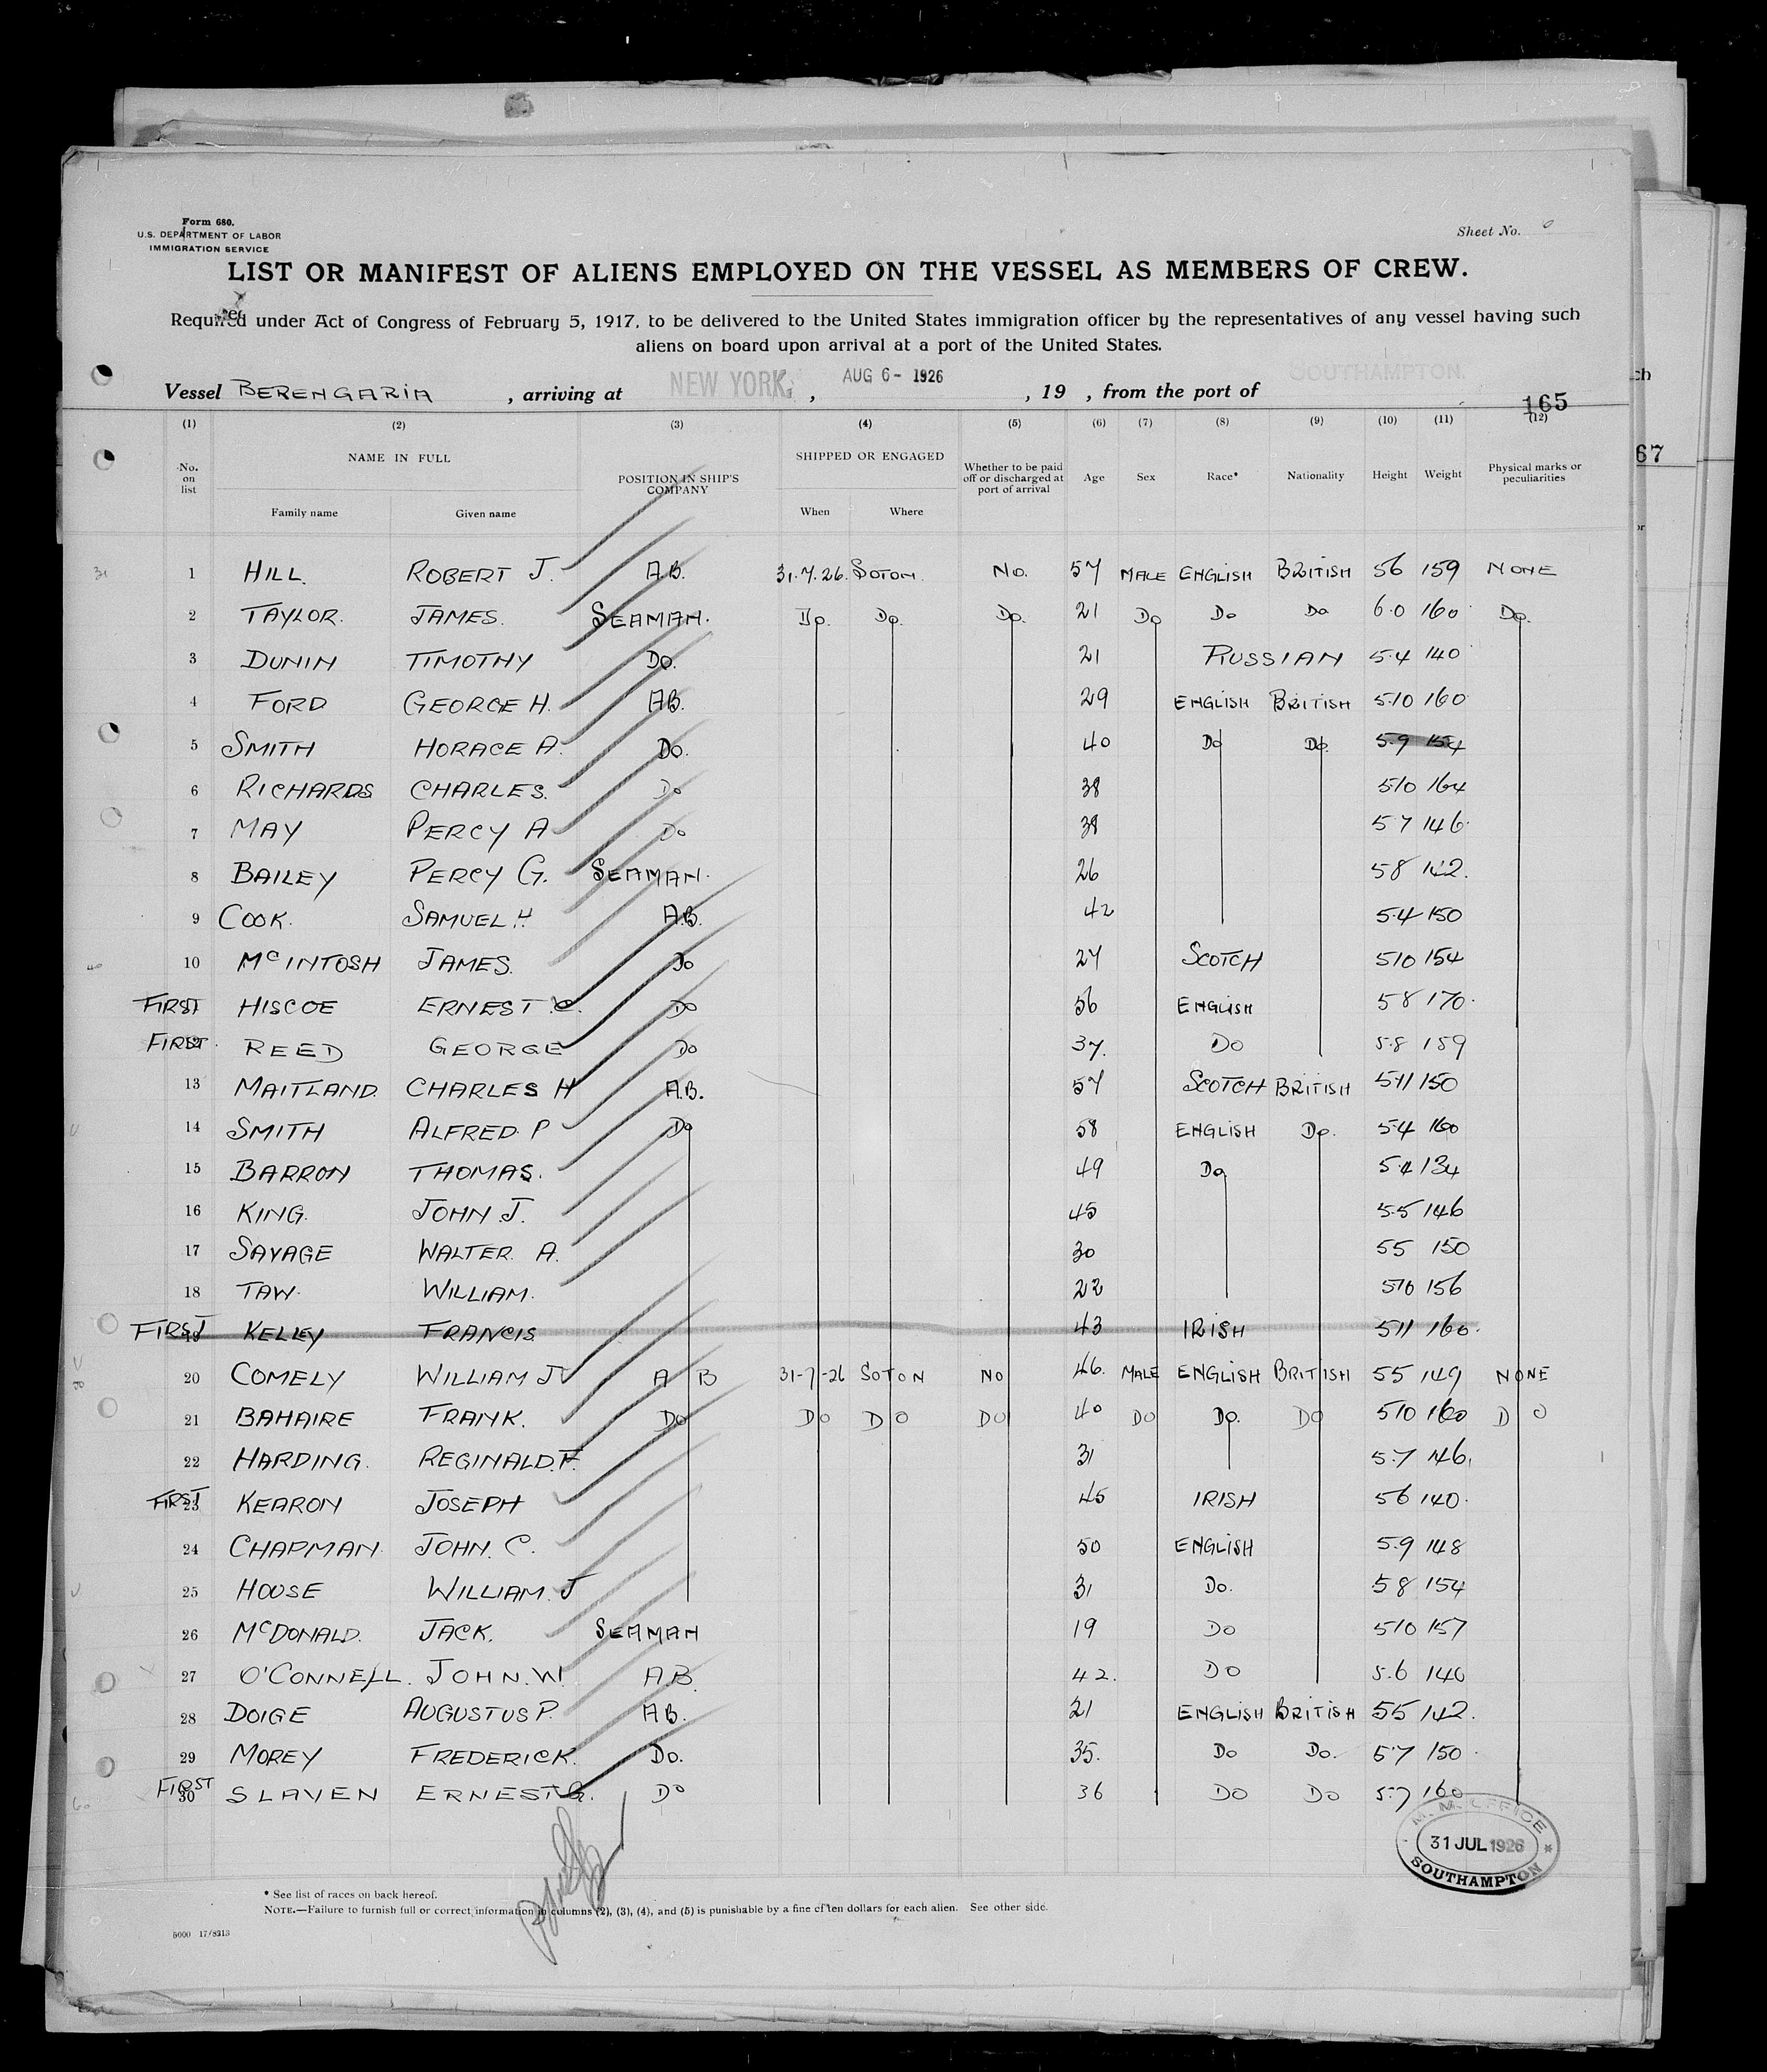 Form 680.
U.S. DEPARTMENT OF LABOR
IMMIGRATION SERVICE
Sheet No.
LIST OR MANIFEST OF ALIENS EMPLOYED ON THE VESSEL AS MEMBERS OF CREW.
Required under Act of Congress of February 5, 1917, to be delivered to the United States immigration officer by the representatives of any vessel having such
aliens on board upon arrival at a port of the United States.
Vessel BERENGARIA , arriving at NEW YORK, , AUG 6- 1926 , 19 , from the port of SOUTHAMPTON.
165
(1) (2) (3) (4) (5) (6) (7) (8) (9) (10) (11) (12)
No. on list NAME IN FULL POSITION IN SHIP'S COMPANY SHIPPED OR ENGAGED Whether to be paid off or discharged at port of arrival Age Sex Race* Nationality Height Weight Physical marks or peculiarities
67
Family name Given name When Where
1 HILL. ROBERT J. A.B. 31.7.26. SOTON. No. 57 MALE ENGLISH BRITISH 56 159 NONE
2 TAYLOR. JAMES. SEAMAN. Do. Do. Do. 21 Do Do Do 6.0 160 Do.
3 DUNIN TIMOTHY Do. 21 RUSSIAN 5.4 140
4 FORD GEORGE H. AB. 29 ENGLISH BRITISH 5.10 160
5 SMITH HORACE A. Do. 40 Do Do. 5.9 154
6 RICHARDS CHARLES. Do 38 510 164
7 MAY PERCY A Do 38 57 146
8 BAILEY PERCY G. SEAMAN. 26 58 142.
9 COOK. SAMUEL H A.B. 42 5.4 150
10 McINTOSH JAMES. Do 27 SCOTCH 510 154
FIRST HISCOE ERNEST C. Do 56 ENGLISH 58 170.
FIRST REED GEORGE Do 37. DO 5.8 159
13 MAITLAND. CHARLES H A.B. 57 SCOTCH BRITISH 511 150
14 SMITH ALFRED. P Do 58 ENGLISH Do. 5.4 160
15 BARRON THOMAS. 49 Do 5.4 134
16 KING. JOHN J. 45 5.5 146
17 SAVAGE WALTER. A. 30 55 150
18 TAW. WILLIAM. 22 510 156
FIRST 19 KELLEY FRANCIS 43 IRISH 511 160.
20 COMELY WILLIAM J A B 31-7-26 SOTON NO 46. MALE ENGLISH BRITISH 55 149 NONE
21 BAHAIRE FRANK. Do DO DO DO 40 DO Do. DO 510 160 DO
22 HARDING. REGINALD.F. 31 5.7 146.
FIRST 23 KEARON JOSEPH 45 IRISH 56 140.
24 CHAPMAN. JOHN. C. 50 ENGLISH 5.9 148
25 HOUSE WILLIAM. J 31 Do. 58 154
26 McDONALD. JACK. SEAMAN 19 DO 510 157
27 O'CONNELL. JOHN.W. A B. 42. DO 5.6 140
28 DOIGE AUGUSTUS P. AB. 21 ENGLISH BRITISH 55 142.
29 MOREY FREDERICK. Do. 35. Do Do. 5.7 150
FIRST 30 SLAVEN ERNEST G. Do 36 DO DO 5.7 160
M. M. OFFICE
31 JUL 1926
SOUTHAMPTON
* See list of races on back hereof.
NOTE.—Failure to furnish full or correct information in columns (2), (3), (4), and (5) is punishable by a fine of ten dollars for each alien. See other side.
5000 17/8213